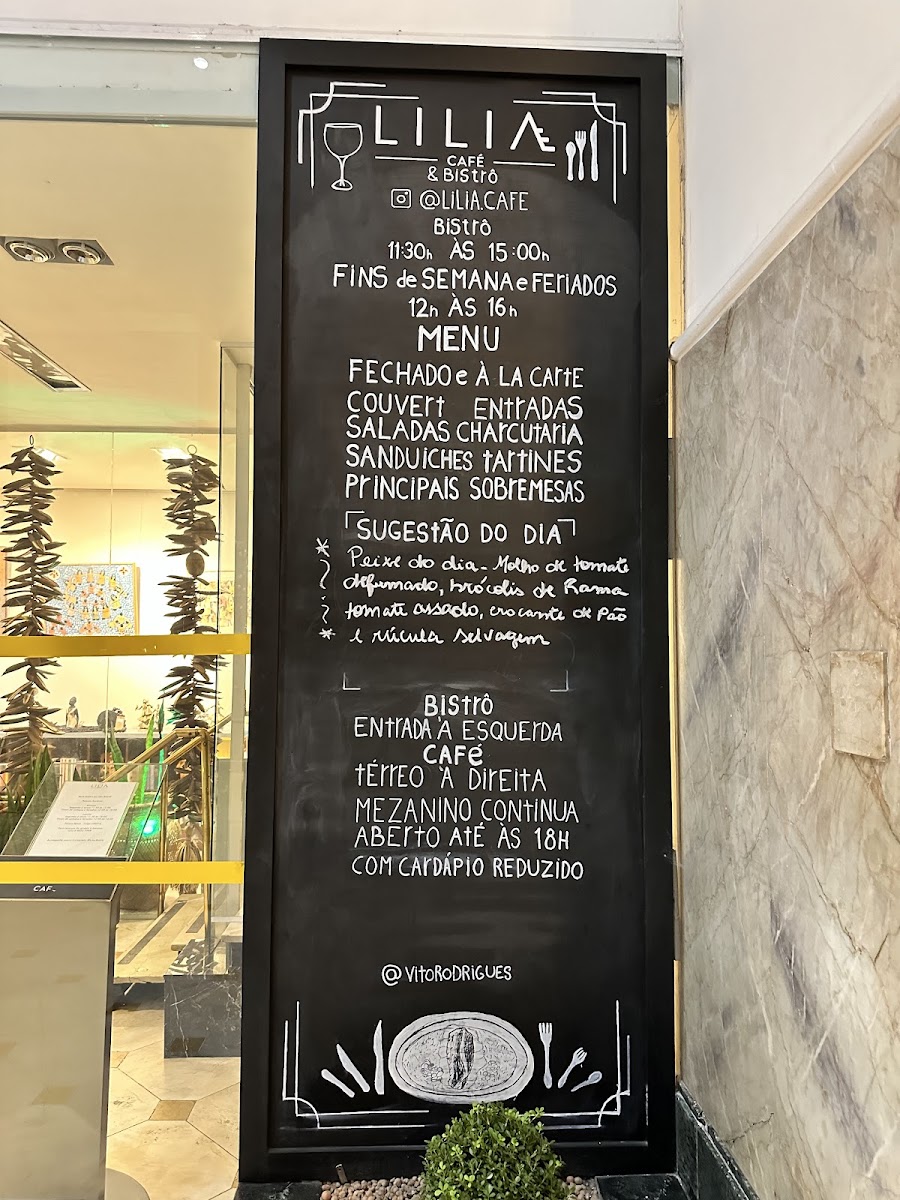 LILIA
CAFÉ
& BISTRÔ
@LILIA.CAFE
BISTRÔ
11:30h ÀS 15:00h
FINS de SEMANA e FERIADOS
12h ÀS 16h
MENU
FECHADO e À LA CARTE
COUVERT ENTRADAS
SALADAS CHARCUTARIA
SANDUICHES TARTINES
PRINCIPAIS SOBREMESAS
SUGESTÃO DO DIA
Peixe do dia - Molho de tomate
defumado, brócolis de Rama
tomate assado, crocante de Pão
e rúcula selvagem
BISTRÔ
ENTRADA À ESQUERDA
CAFÉ
TÉRREO À DIREITA
MEZANINO CONTINUA
ABERTO ATÉ ÀS 18H
COM CARDÁPIO REDUZIDO
@VITORODRIGUES
LILIA